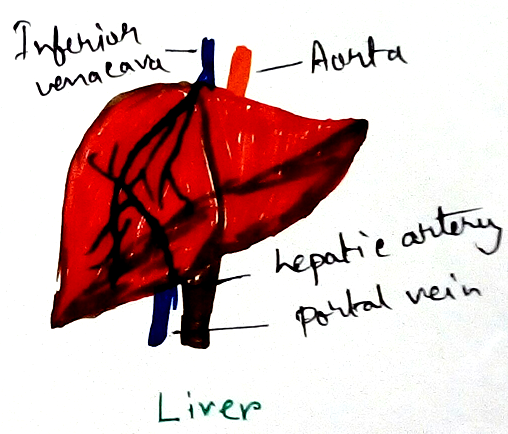 Inferior
venacava
Aorta
hepatic artery
portal vein
Liver